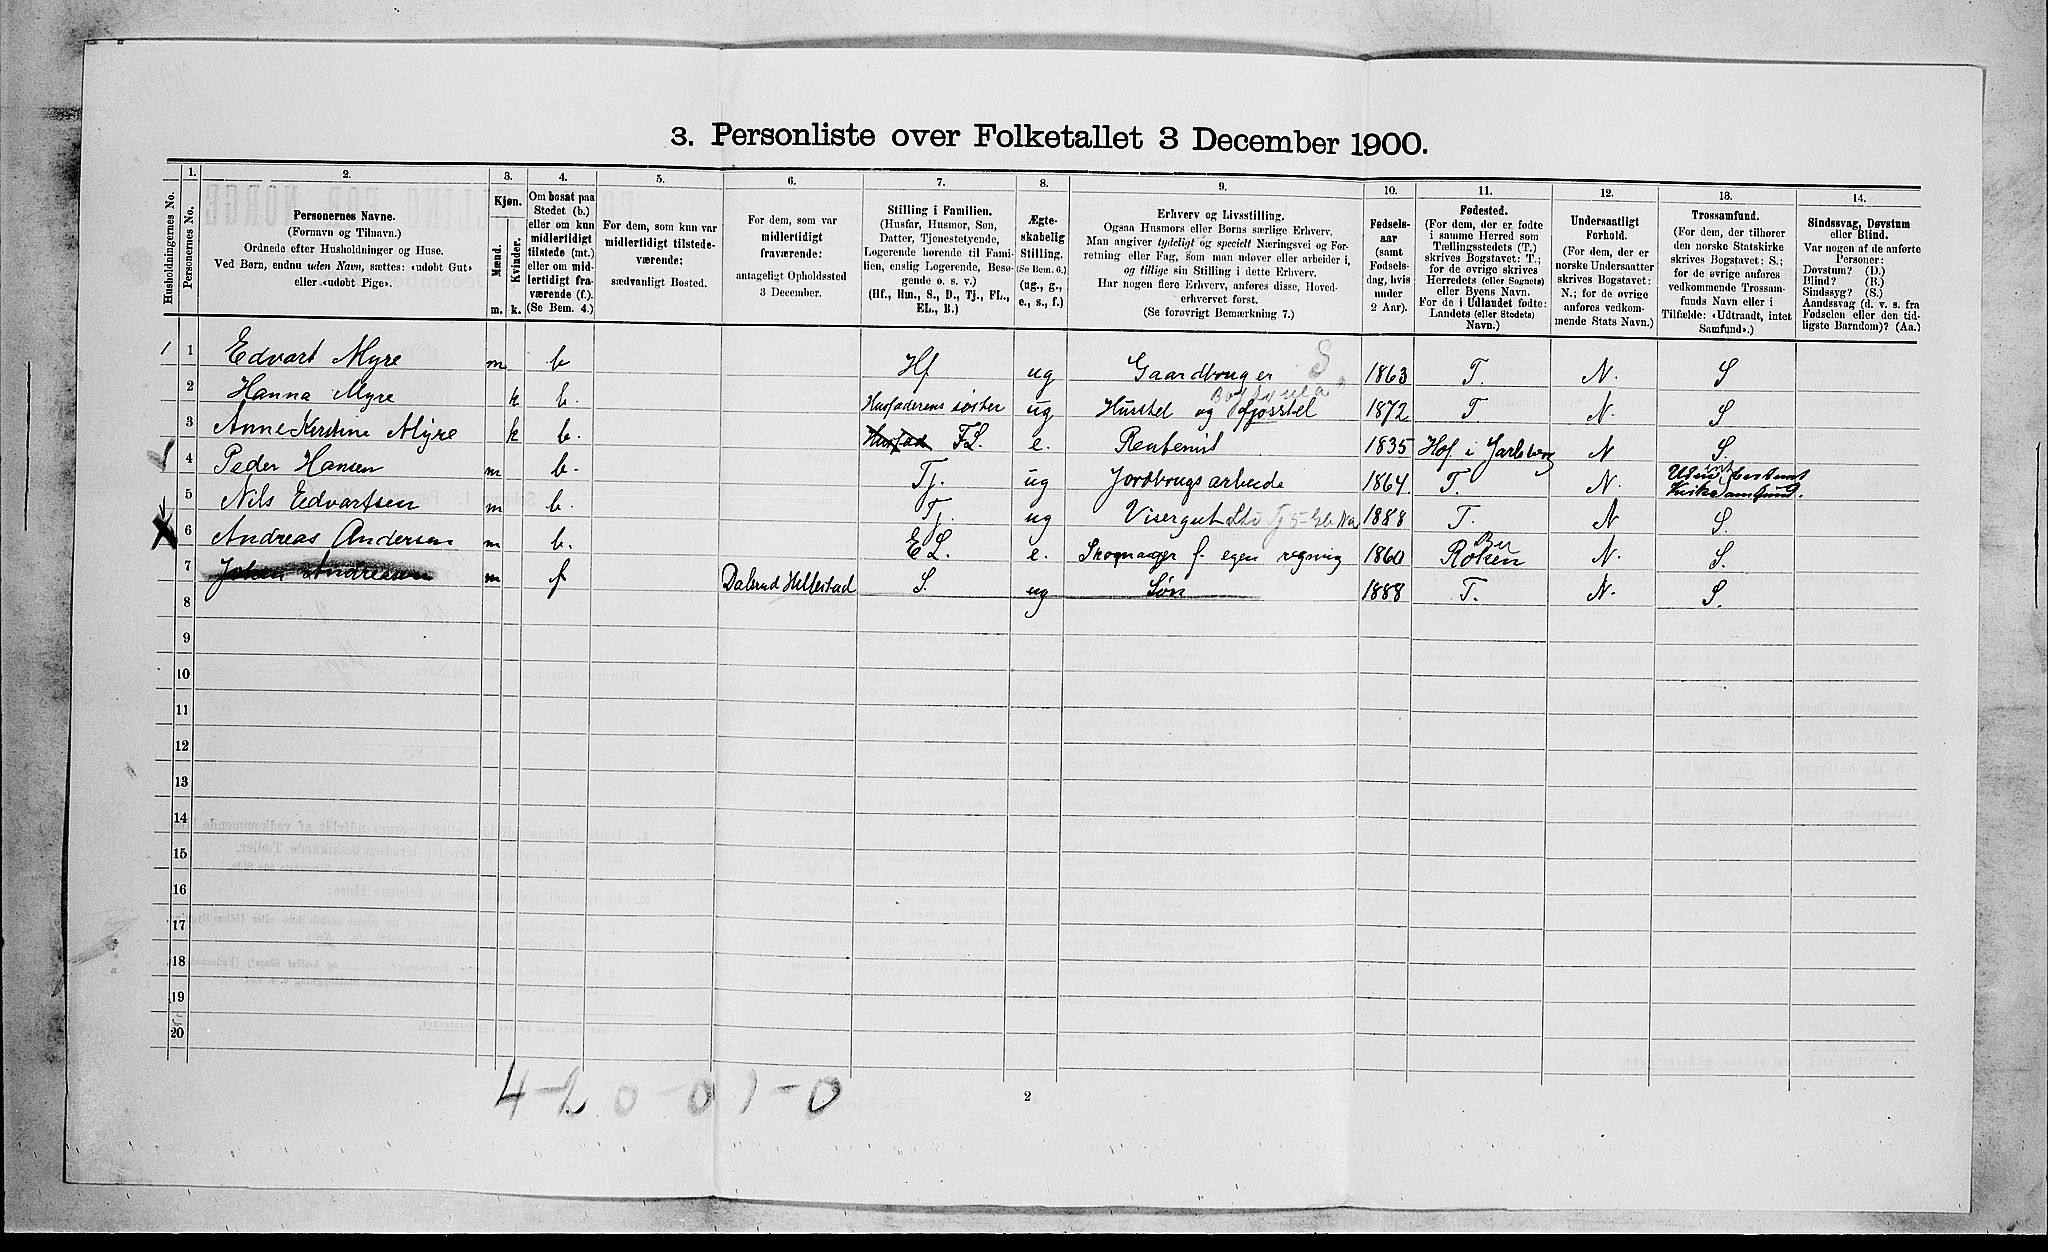 3. Personliste over Folketallet 3 December 1900.
Husholdningernes No.
1.
Personernes No.
2.
Personernes Navne.
(Fornavn og Tilnavn.)
Ordnede efter Husholdninger og Huse.
Ved Børn, endnu uden Navn, sættes: «udøbt Gut»
eller «udøbt Pige».
3.
Kjøn.
Mænd.
Kvinder.
m.
k.
4.
Om bosat paa
Stedet (b.)
eller om kun
midlertidigt
tilstede (mt.)
eller om mid-
lertidigt fra-
værende (f.).
(Se Bem. 4.)
5.
For dem, som kun var
midlertidigt tilstede-
værende:
sædvanligt Bosted.
6.
For dem, som var
midlertidigt
fraværende:
antageligt Opholdssted
3 December.
7.
Stilling i Familien.
(Husfar, Husmor, Søn,
Datter, Tjenestetyende,
Logerende hørende til Fami-
lien, enslig Logerende, Besø-
gende o. s. v.)
(Hf., Hm., S., D., Tj., FL.,
EL., B.)
8.
Ægte-
skabelig
Stilling.
(Se Bem. 6.)
(ug., g.,
e., s., f.)
9.
Erhverv og Livsstilling.
Ogsaa Husmors eller Børns særlige Erhverv.
Man angiver tydeligt og specielt Næringsvei og For-
retning eller Fag, som man udøver eller arbeider i,
og tillige sin Stilling i dette Erhverv.
Har nogen flere Erhverv, anføres disse, Hoved-
erhvervet først.
(Se forøvrigt Bemærkning 7.)
10.
Fødsels-
aar
(samt
Fødsels-
dag, hvis
under
2 Aar).
11.
Fødested.
(For dem, der er fødte
i samme Herred som
Tællingsstedets (T.)
skrives Bogstavet: T.;
for de øvrige skrives
Herredets (eller Sognets)
eller Byens Navn.
For de i Udlandet fødte:
Landets (eller Stedets)
Navn.)
12.
Undersaatligt
Forhold.
(For dem, der er
norske Undersaatter
skrives Bogstavet:
N.; for de øvrige
anføres vedkom-
mende Stats Navn.)
13.
Trossamfund.
(For dem, der tilhører
den norske Statskirke
skrives Bogstavet: S.;
for de øvrige anføres
vedkommende Trossam-
funds Navn eller i
Tilfælde: «Udtraadt, intet
Samfund».)
14.
Sindssvag, Døvstum
eller Blind.
Var nogen af de anførte
Personer:
Døvstum? (D.)
Blind? (B.)
Sindssyg? (S.)
Aandssvag (d. v. s. fra
Fødselen eller den tid-
ligste Barndom)? (Aa.)
1 1 Edvart Myre m b Hf ug Gaardbruger 1863 T. N. S
2 Hanna Myre k b. Husfaderens søster ug Husstel og fjosstel 1872 T N S
3 Anne Kirstine Myre k b. Husfad FL. e. Rentenist 1835 Hof i Jarlsberg N S.
4 Peder Hansen m b. Tj. ug Jordbrugsarbeide 1864. T. N. Uden bestemt
Kirkesamfund.
5 Nils Edvartsen m b. Tj. ug Visergut 1888 T. N S.
6 Andreas Andersen m b. EL. e. Skomager f. egen regning 1860 Røken N. S.
7 Johan Andreasen m f Dalsrud Hillestad S. ug Søn 1888 T. N. S.
8
9
10
11
12
13
14
15
16
17
18
19
20
4-2 0-0 1-0
2